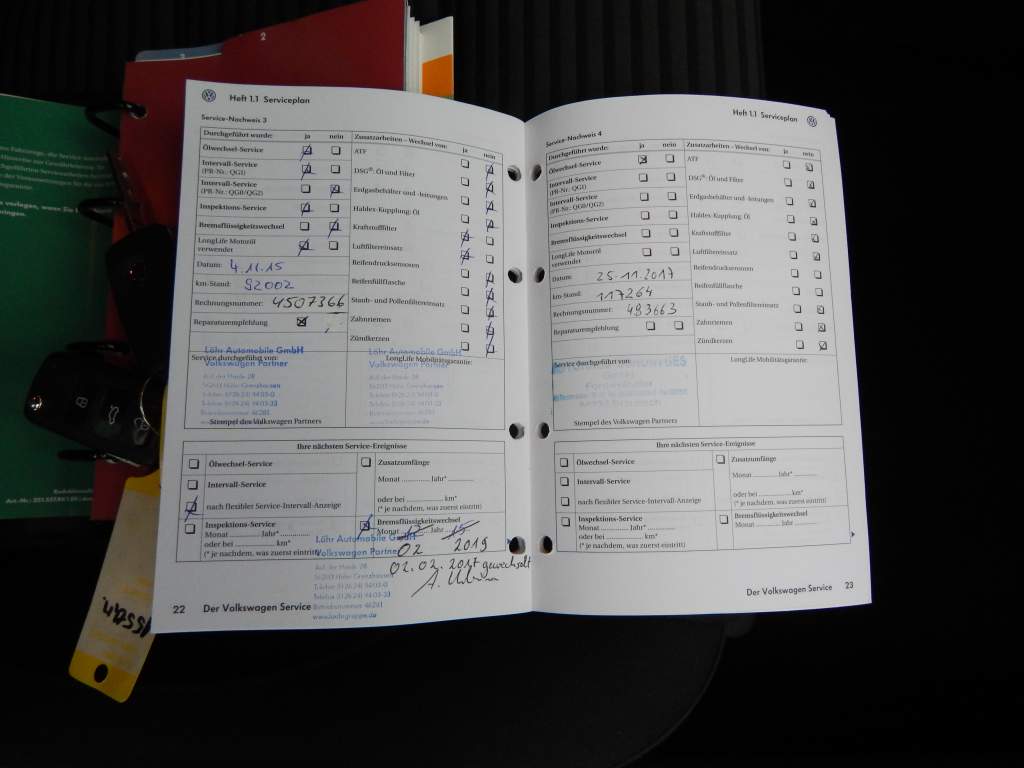 2
3
Heft 1.1 Serviceplan
Service-Nachweis 3
Durchgeführt wurde: ja nein
Ölwechsel-Service
Intervall-Service
(PR-Nr.: QG1)
Intervall-Service
(PR-Nr.: QG0/QG2)
Inspektions-Service
Bremsflüssigkeitswechsel
LongLife Motoröl
verwendet
Datum: 4.11.15
km-Stand: 92002
Rechnungsnummer: 4507366
Reparaturempfehlung
Zusatzarbeiten – Wechsel von: ja nein
ATF
DSG®: Öl und Filter
Erdgasbehälter und -leitungen
Haldex-Kupplung: Öl
Kraftstofffilter
Luftfiltereinsatz
Reifendrucksensoren
Reifenfüllflasche
Staub- und Pollenfiltereinsatz
Zahnriemen
Zündkerzen
Service durchgeführt von:
Löhr Automobile GmbH
Volkswagen Partner
Auf der Heide 28
56203 Höhr-Grenzhausen
LongLife Mobilitätsgarantie:
Löhr Automobile GmbH
Volkswagen Partner
Auf der Heide 28
56203 Höhr-Grenzhausen
Stempel des Volkswagen Partners
Ihre nächsten Service-Ereignisse
Ölwechsel-Service
Intervall-Service
nach flexibler Service-Intervall-Anzeige
Inspektions-Service
Monat Jahr*
oder bei km*
(* je nachdem, was zuerst eintritt)
Zusatzumfänge
Monat Jahr*
oder bei km*
(* je nachdem, was zuerst eintritt)
Bremsflüssigkeitswechsel
Monat Jahr
02 2019
02.02.2017 gewechselt
Löhr Automobile GmbH
Volkswagen Partner
Auf der Heide 28
56203 Höhr-Grenzhausen
22 Der Volkswagen Service
Heft 1.1 Serviceplan
Service-Nachweis 4
Durchgeführt wurde: ja nein
Ölwechsel-Service
Intervall-Service
(PR-Nr.: QG1)
Intervall-Service
(PR-Nr.: QG0/QG2)
Inspektions-Service
Bremsflüssigkeitswechsel
LongLife Motoröl
verwendet
Datum: 25.11.2017
km-Stand: 117264
Rechnungsnummer: 493663
Reparaturempfehlung
Zusatzarbeiten – Wechsel von: ja nein
ATF
DSG®: Öl und Filter
Erdgasbehälter und -leitungen
Haldex-Kupplung: Öl
Kraftstofffilter
Luftfiltereinsatz
Reifendrucksensoren
Reifenfüllflasche
Staub- und Pollenfiltereinsatz
Zahnriemen
Zündkerzen
Service durchgeführt von:
LongLife Mobilitätsgarantie:
Stempel des Volkswagen Partners
Ihre nächsten Service-Ereignisse
Ölwechsel-Service
Intervall-Service
nach flexibler Service-Intervall-Anzeige
Inspektions-Service
Monat Jahr*
oder bei km*
(* je nachdem, was zuerst eintritt)
Zusatzumfänge
Monat Jahr*
oder bei km*
(* je nachdem, was zuerst eintritt)
Bremsflüssigkeitswechsel
Monat Jahr
Der Volkswagen Service 23